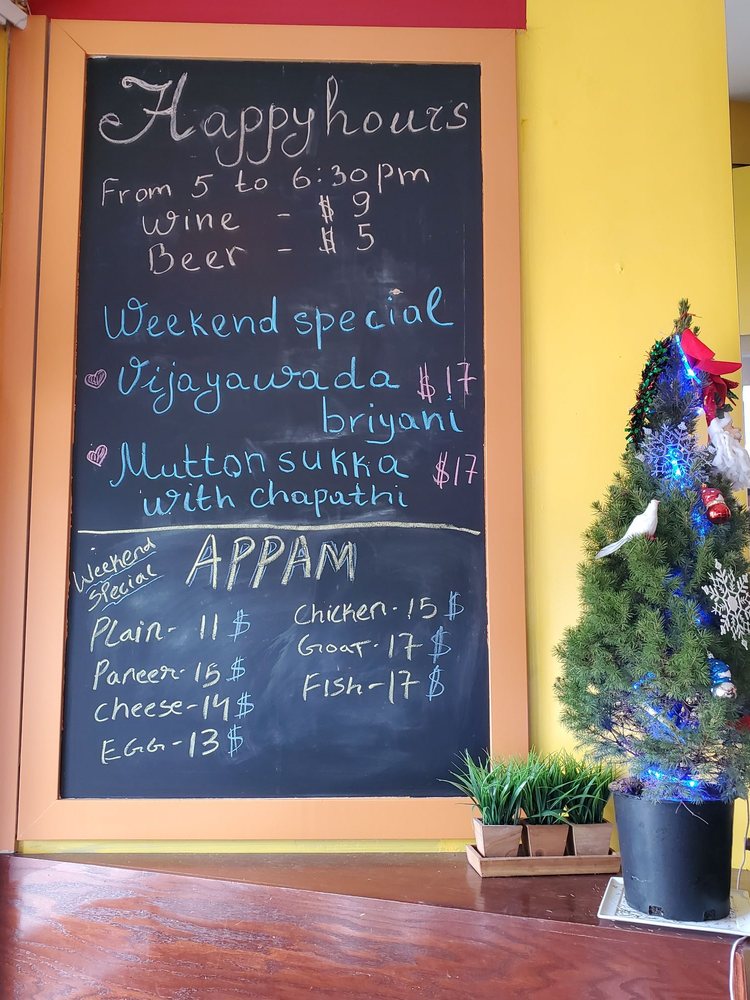 Happy hours
From 5 to 6:30pm
Wine - $ 9
Beer - $ 5
Weekend special
Vijayawada $17
briyani
Mutton sukka $17
with chapathi
Weekend
Special
APPAM
Plain - 11 $
Paneer - 15 $
Cheese - 14 $
EGG - 13 $
Chicken - 15 $
Goat - 17 $
Fish - 17 $